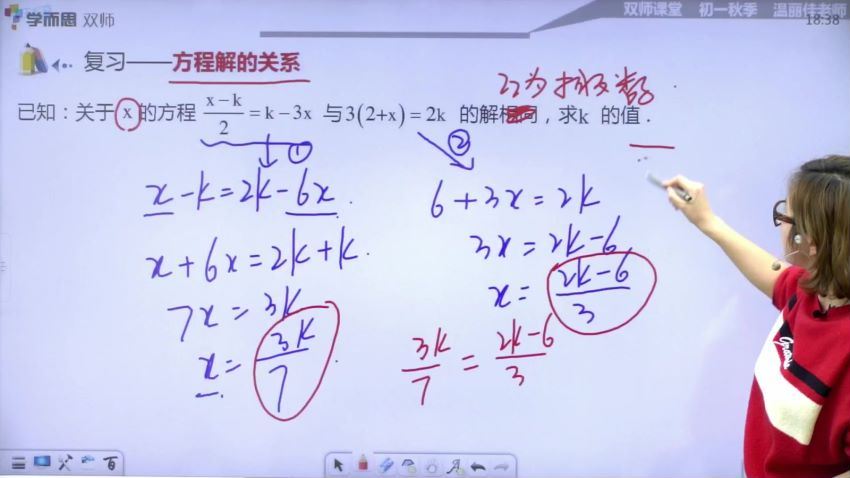 学而思 双师
双师课堂 初一秋季 温丽佳老师
18:38
复习——方程解的关系
互为相反数
已知：关于 x 的方程 (x-k)/2 = k-3x 与 3(2+x) = 2k 的解相同，求k 的值．
① ②
x-k=2k-6x
x+6x=2k+k
7x=3k
x=3k/7
6+3x=2k
3x=2k-6
x=(2k-6)/3
3k/7=(2k-6)/3